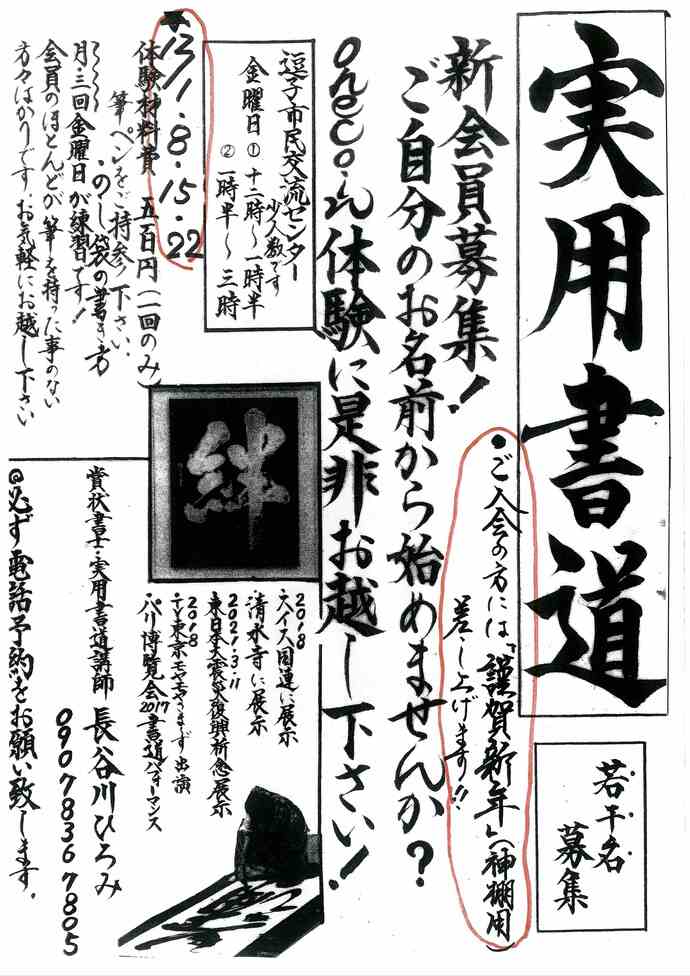 実用書道
若干名
募集
・ご入会の方には「謹賀新年」(神棚用)
差し上げます!!
新会員募集!
ご自分のお名前から始めませんか?
oneco.in体験に是非お越し下さい!
逗子市民交流センター
少人数です
金曜日①十二時〜一時半
②一時半〜三時
12/1・8・15・22
体験材料費 五百円(一回のみ)
筆ペンをご持参下さい。
・のし袋の書き方
月・三回金曜日が練習です!
会員のほとんどが筆を持った事のない
方々ばかりですお気軽にお越し下さい
絆
2018
・スイス国連に展示
清水寺に展示
2021.3.11
東日本大震災復興祈念展示
2018
テレ東京モヤモヤさまぁ〜ず出演
・パリ博覧会2017書道パフォーマンス
賞状書士・実用書道講師 長谷川ひろみ
09078367805
◎必ず電話予約をお願い致します。